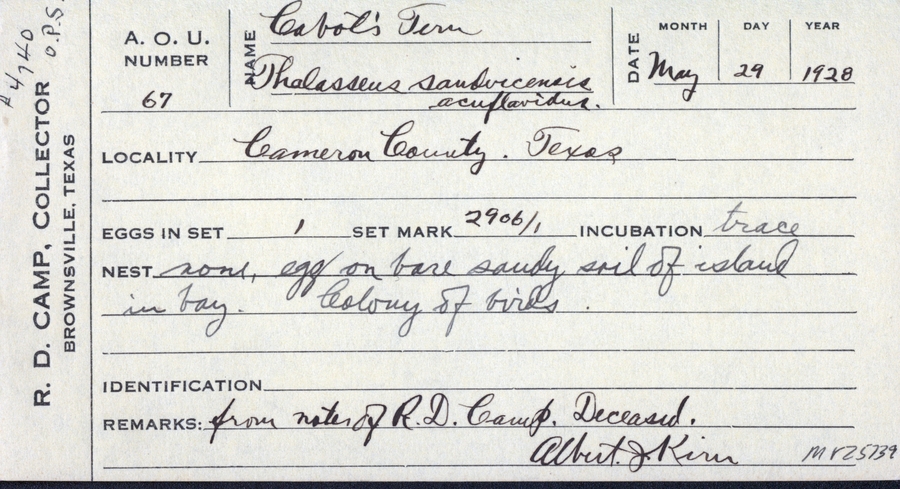 #4740
O.P.S.
R. D. CAMP, COLLECTOR
BROWNSVILLE, TEXAS
A. O. U.
NUMBER
67
NAME Cabot's Tern
Thalasseus sandvicensis
acuflavidus.
DATE
MONTH DAY YEAR
May 29 1928
LOCALITY Cameron County. Texas
EGGS IN SET 1 SET MARK 2906/1 INCUBATION trace
NEST none, egg on bare sandy soil of island
in bay. Colony of birds.
IDENTIFICATION
REMARKS: from notes of R.D. Camp. Deceased.
Albert. J. Kirn
MVZ5739